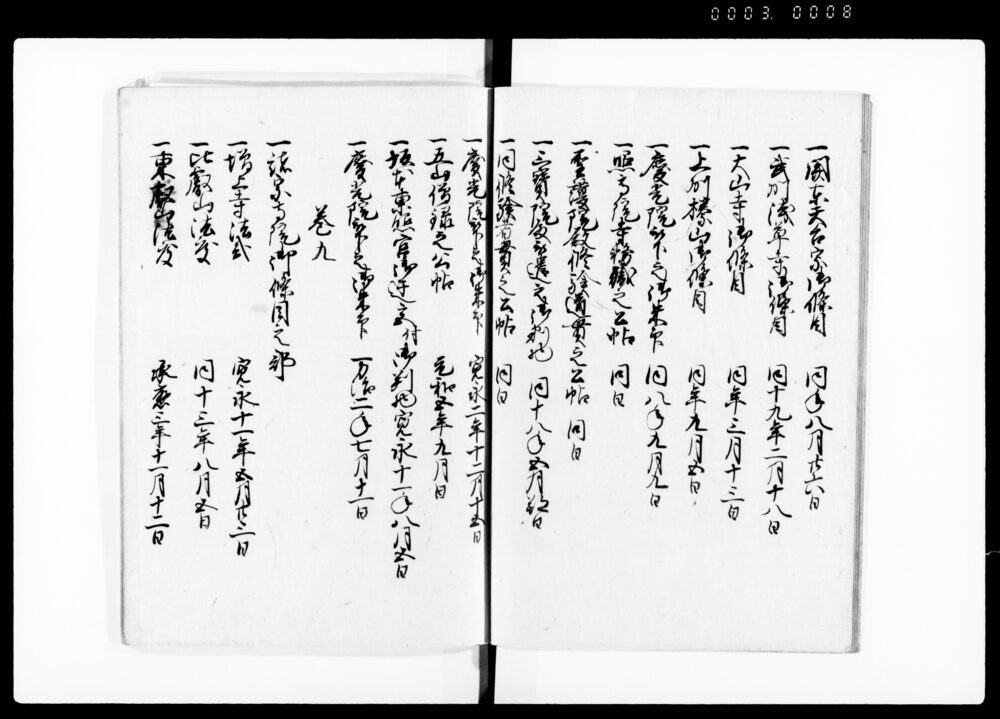 0003. 0008
一関東天台宗御條目 同年八月廿六日
一武州浅草寺御條目 同十九年二月十八日
一大山寺御條目 同年三月十三日
一上州榛山御條目 同年九月五日
一慶光院江下之御朱印 同八年九月九日
一照高院寺務職之公帖 同日
一聖護院殿修験道貫之公帖 同日
一三寶院殿江被遣之御判物 同十八年五月 日
一同修験者貫之公帖 同日
一慶光院江下之御朱印 寛永二年十二月十五日
一五山僧録之公帖 元和五年九月 日
一坂本東照宮御遷宮ニ付御判物 寛永十一年八月五日
一慶光院江下之御朱印 万治二年七月十一日
巻九
一諸宗寺院御條目之部
一増上寺法式 寛永十一年五月廿三日
一比叡山法度 同十三年八月五日
一東叡山法度 承應三年十一月十二日